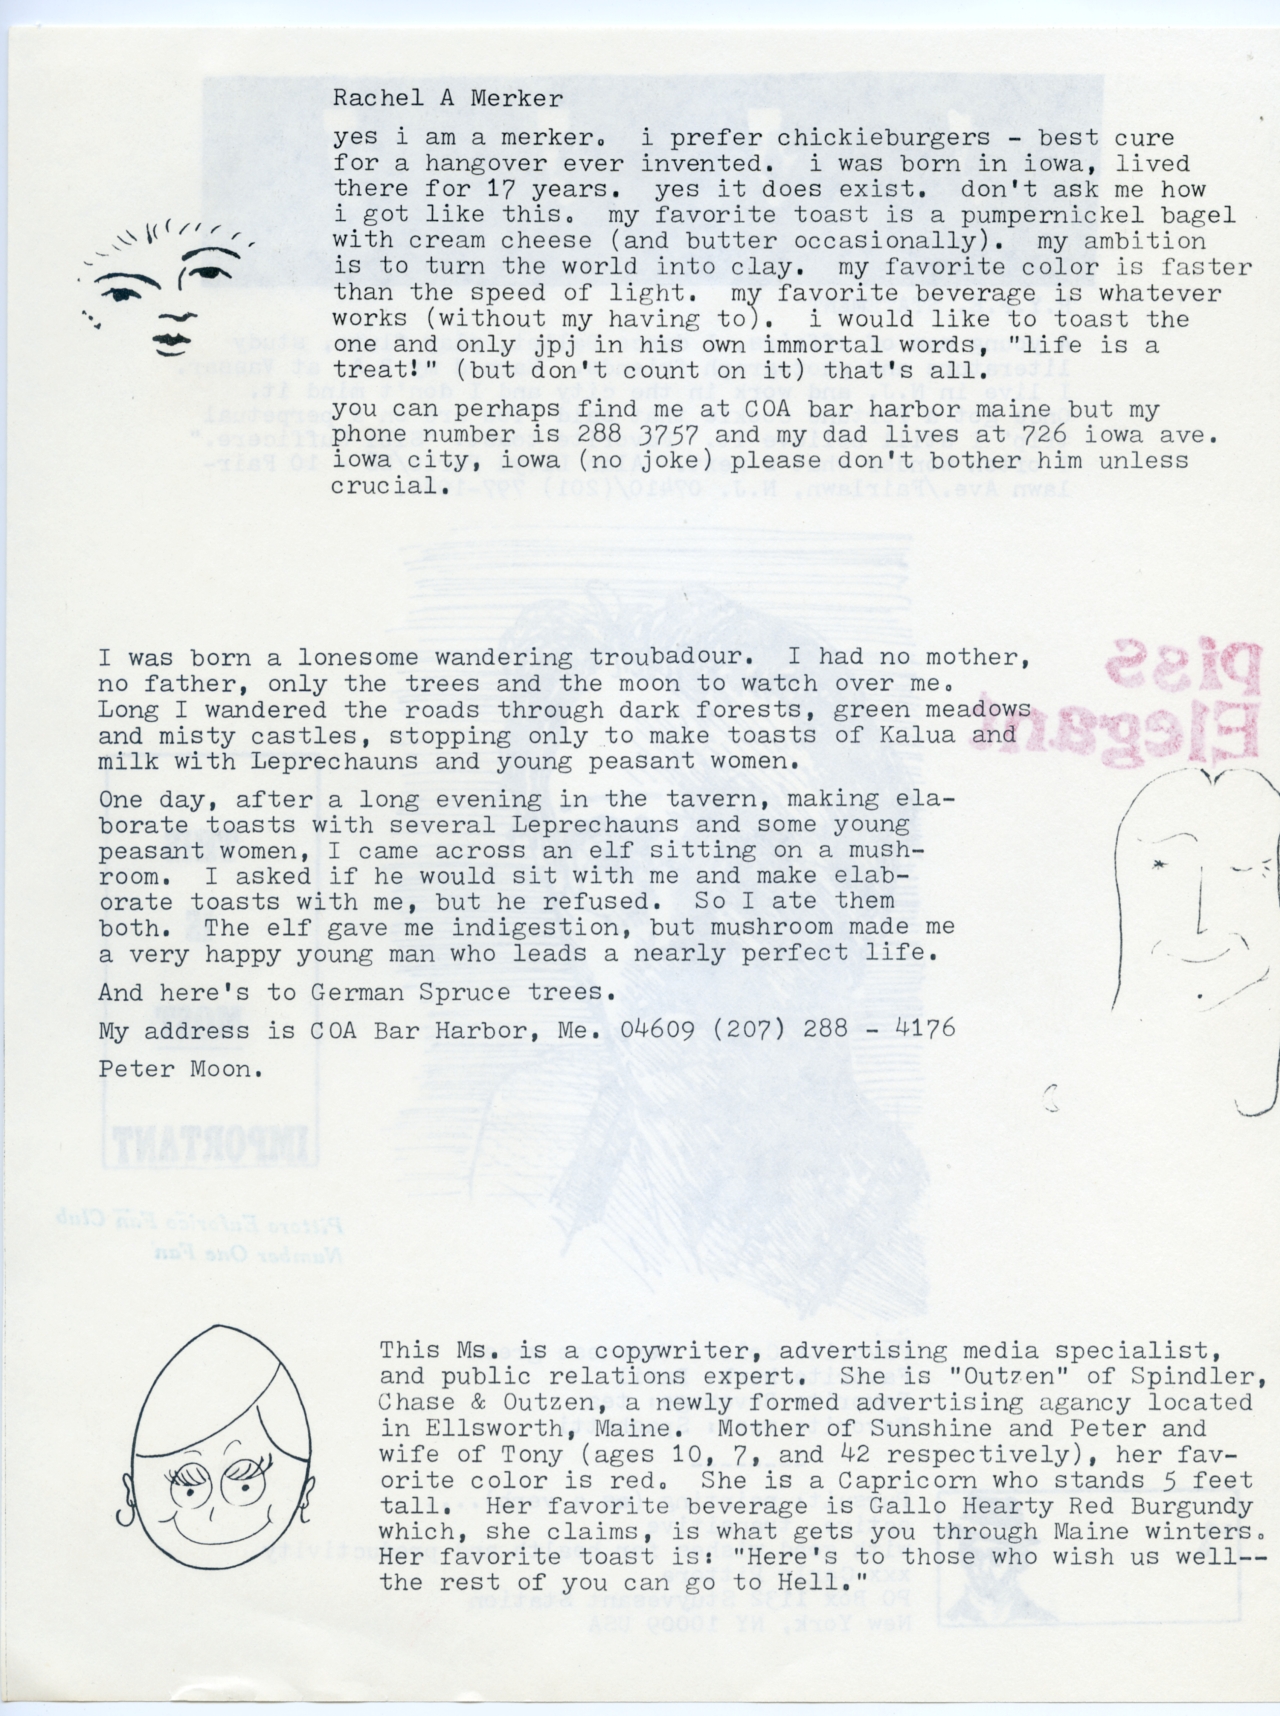 Rachel A Merker
yes i am a merker. i prefer chickieburgers - best cure
for a hangover ever invented. i was born in iowa, lived
there for 17 years. yes it does exist. don't ask me how
i got like this. my favorite toast is a pumpernickel bagel
with cream cheese (and butter occasionally). my ambition
is to turn the world into clay. my favorite color is faster
than the speed of light. my favorite beverage is whatever
works (without my having to). i would like to toast the
one and only jpj in his own immortal words, "life is a
treat!" (but don't count on it) that's all.
you can perhaps find me at COA bar harbor maine but my
phone number is 288 3757 and my dad lives at 726 iowa ave.
iowa city, iowa (no joke) please don't bother him unless
crucial.
I was born a lonesome wandering troubadour. I had no mother,
no father, only the trees and the moon to watch over me.
Long I wandered the roads through dark forests, green meadows
and misty castles, stopping only to make toasts of Kalua and
milk with Leprechauns and young peasant women.
One day, after a long evening in the tavern, making ela-
borate toasts with several Leprechauns and some young
peasant women, I came across an elf sitting on a mush-
room. I asked if he would sit with me and make elab-
orate toasts with me, but he refused. So I ate them
both. The elf gave me indigestion, but mushroom made me
a very happy young man who leads a nearly perfect life.
And here's to German Spruce trees.
My address is COA Bar Harbor, Me. 04609 (207) 288 - 4176
Peter Moon.
piss
Elegant
IMPORTANT
Pittore Euforico Fan Club
Number One Fan
This Ms. is a copywriter, advertising media specialist,
and public relations expert. She is "Outzen" of Spindler,
Chase & Outzen, a newly formed advertising agancy located
in Ellsworth, Maine. Mother of Sunshine and Peter and
wife of Tony (ages 10, 7, and 42 respectively), her fav-
orite color is red. She is a Capricorn who stands 5 feet
tall. Her favorite beverage is Gallo Hearty Red Burgundy
which, she claims, is what gets you through Maine winters.
Her favorite toast is: "Here's to those who wish us well--
the rest of you can go to Hell."